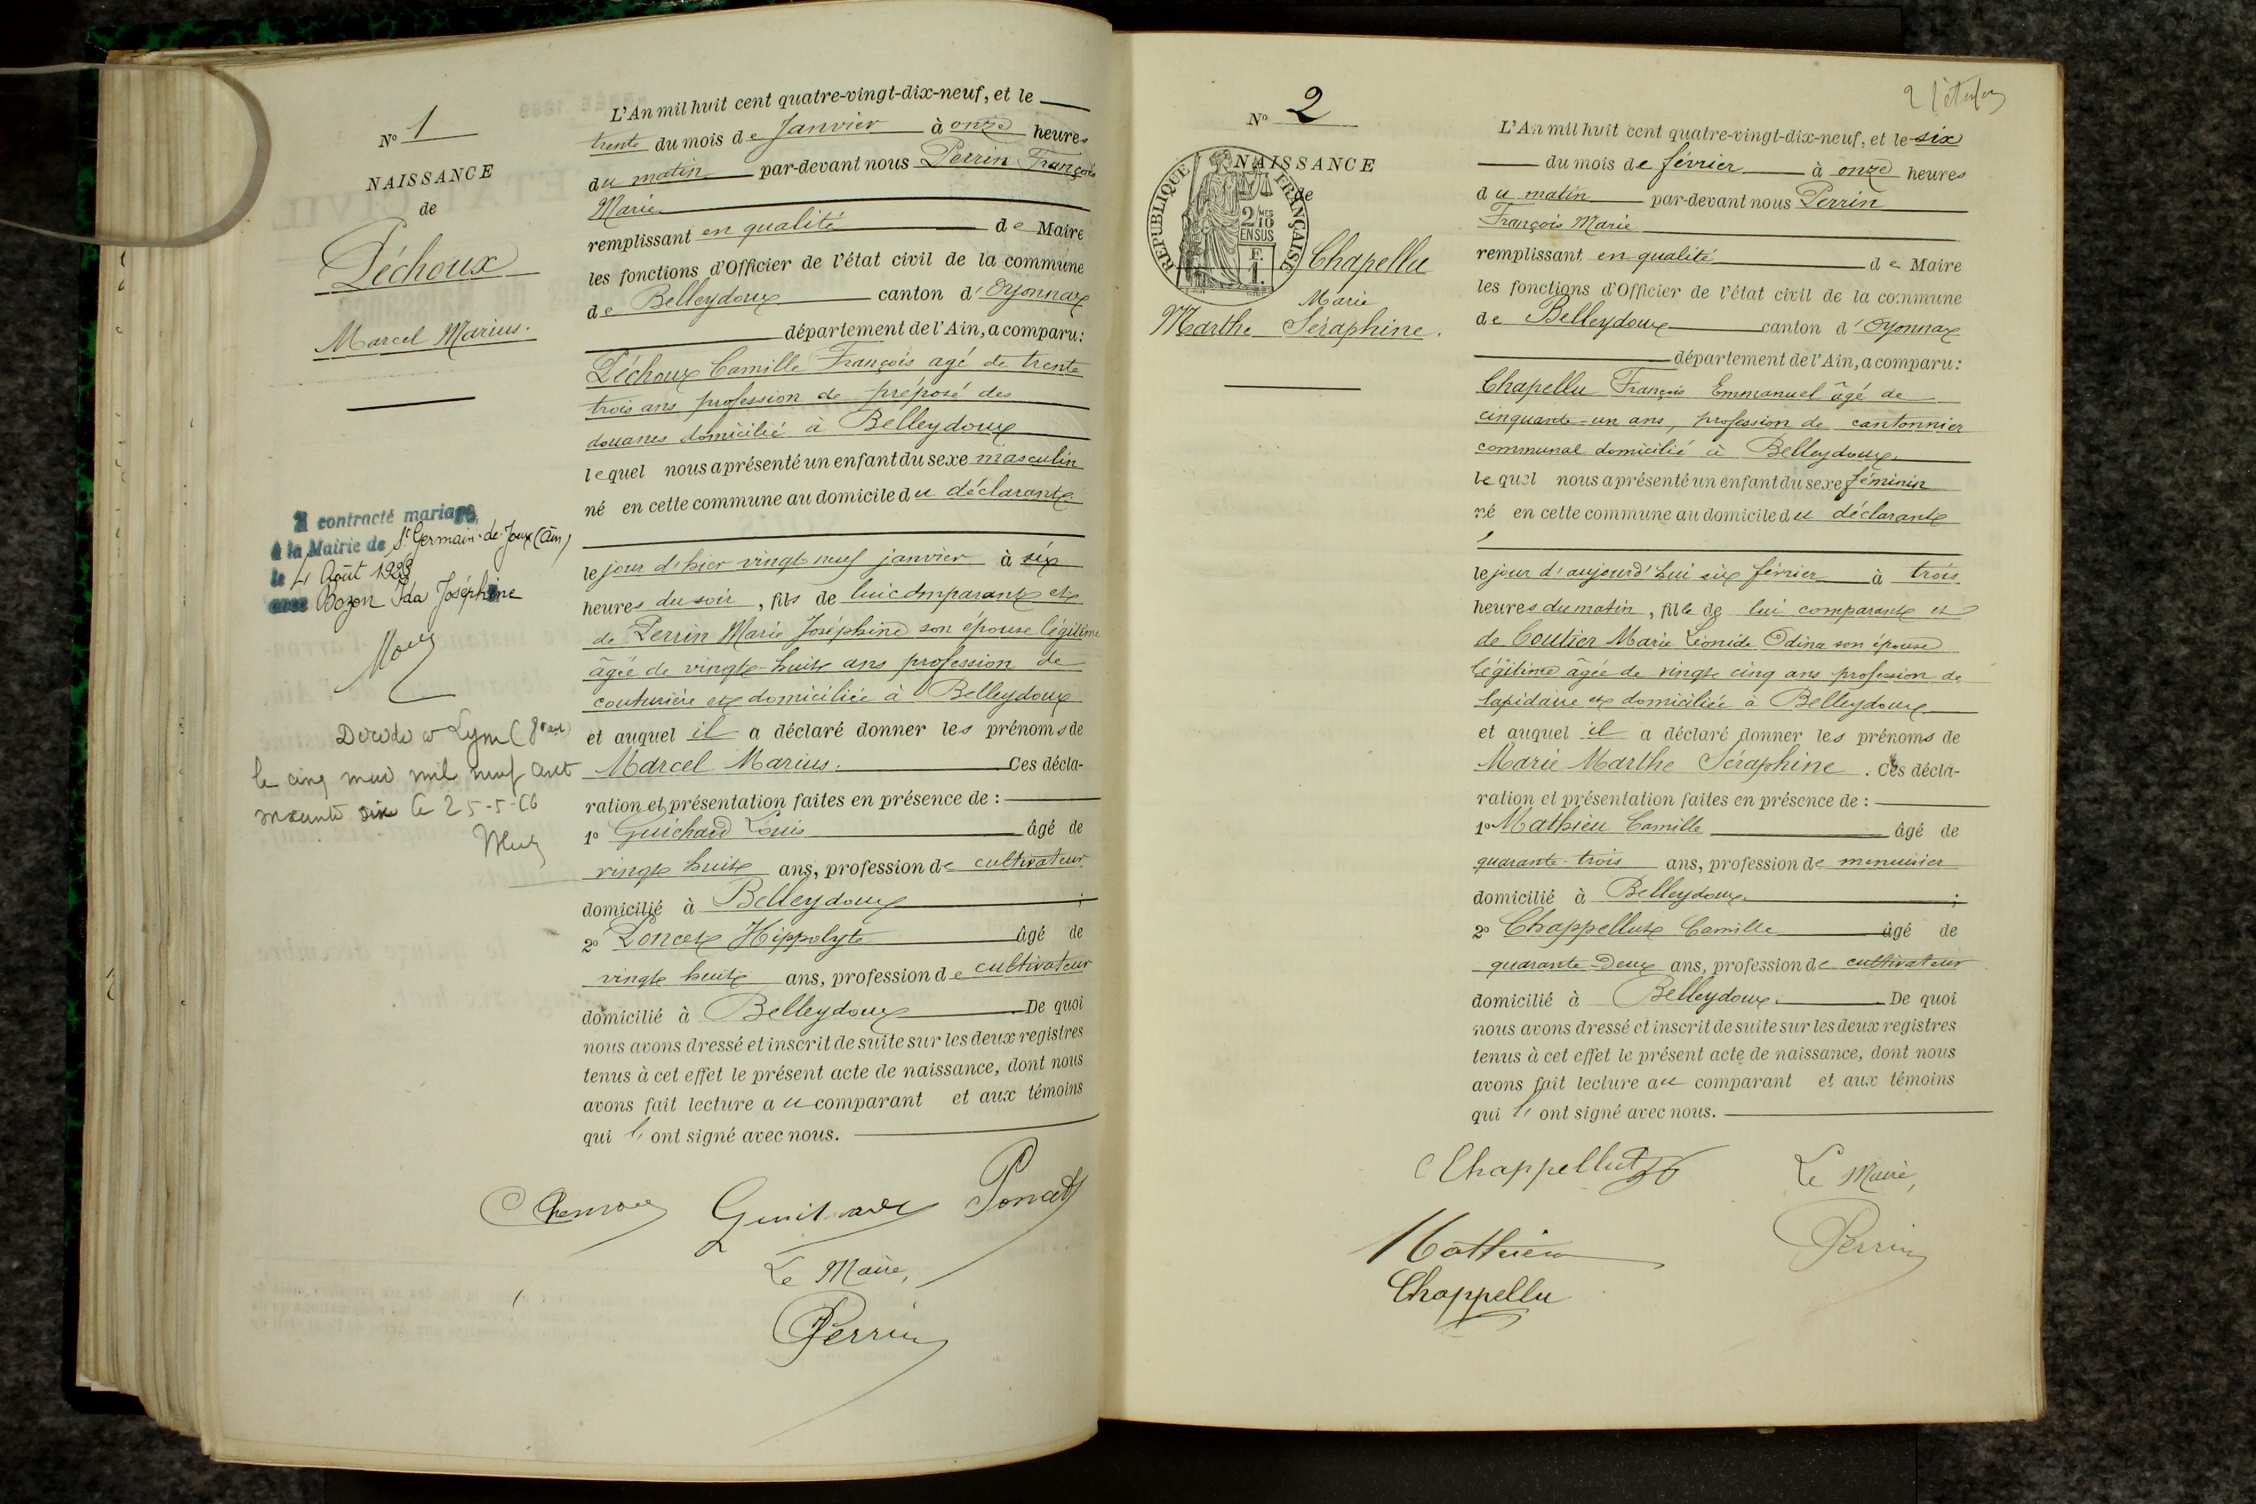 N° 1
NAISSANCE
de
Péchoux
Marcel Marius.
A contracté mariage
à la Mairie de St Germain-de-Joux (Ain)
le 4 Août 1923
avec Bozon Ida Joséphine
le cinq mai mil neuf cent
soixante six le 25-5-66
L'An mil huit cent quatre-vingt-dix-neuf, et le
trente du mois de Janvier à onze heures
du matin par-devant nous Perrin François
Marie
remplissant en qualité de Maire
les fonctions d'Officier de l'état civil de la commune
de Belleydoux canton d'Oyonnax
département de l'Ain, a comparu:
Péchoux Camille François agé de trente
trois ans profession de préposé des
douanes domicilié à Belleydoux
lequel nous a présenté un enfant du sexe masculin
né en cette commune au domicile du déclarant
le jour d'hier vingt-neuf janvier à six
heures du soir, fils de lui comparant et
de Perrin Marie Joséphine son épouse légitime
âgée de vingt-huit ans profession de
couturière et domiciliée à Belleydoux
et auquel il a déclaré donner les prénoms de
Marcel Marius. Ces décla-
ration et présentation faites en présence de :
1° Guichard Louis âgé de
vingt huit ans, profession de cultivateur
domicilié à Belleydoux ;
2° Poncet Hippolyte âgé de
vingt huit ans, profession de cultivateur
domicilié à Belleydoux De quoi
nous avons dressé et inscrit de suite sur les deux registres
tenus à cet effet le présent acte de naissance, dont nous
avons fait lecture au comparant et aux témoins
qui l' ont signé avec nous.
Poncet
Le Maire,
Perrin
N° 2
NAISSANCE
de
REPUBLIQUE FRANÇAISE
2/10
EN SUS
F.
1.
Chapellu
Marie
Marthe Séraphine.
L'An mil huit cent quatre-vingt-dix-neuf, et le six
du mois de février à onze heures
du matin par-devant nous Perrin
François Marie
remplissant en qualité de Maire
les fonctions d'Officier de l'état civil de la commune
de Belleydoux canton d'Oyonnax
département de l'Ain, a comparu:
Chapellu François Emmanuel âgé de
cinquante-un ans, profession de cantonnier
communal domicilié à Belleydoux
lequel nous a présenté un enfant du sexe féminin
né en cette commune au domicile du déclarant
le jour d'aujourd'hui six février à trois
heures du matin, fille de lui comparant et
de Coutier Marie Léonide Odina son épouse
légitime âgée de vingt cinq ans profession de
lapidaire et domiciliée à Belleydoux
et auquel il a déclaré donner les prénoms de
Marie Marthe Séraphine. Ces décla-
ration et présentation faites en présence de :
1° Mathieu Camille âgé de
quarante-trois ans, profession de menuisier
domicilié à Belleydoux ;
2° Chappellut Camille âgé de
quarante-deux ans, profession de cultivateur
domicilié à Belleydoux. De quoi
nous avons dressé et inscrit de suite sur les deux registres
tenus à cet effet le présent acte de naissance, dont nous
avons fait lecture au comparant et aux témoins
qui l' ont signé avec nous.
Chappellut
Le Maire,
Mathieu
Perrin
Chappellu